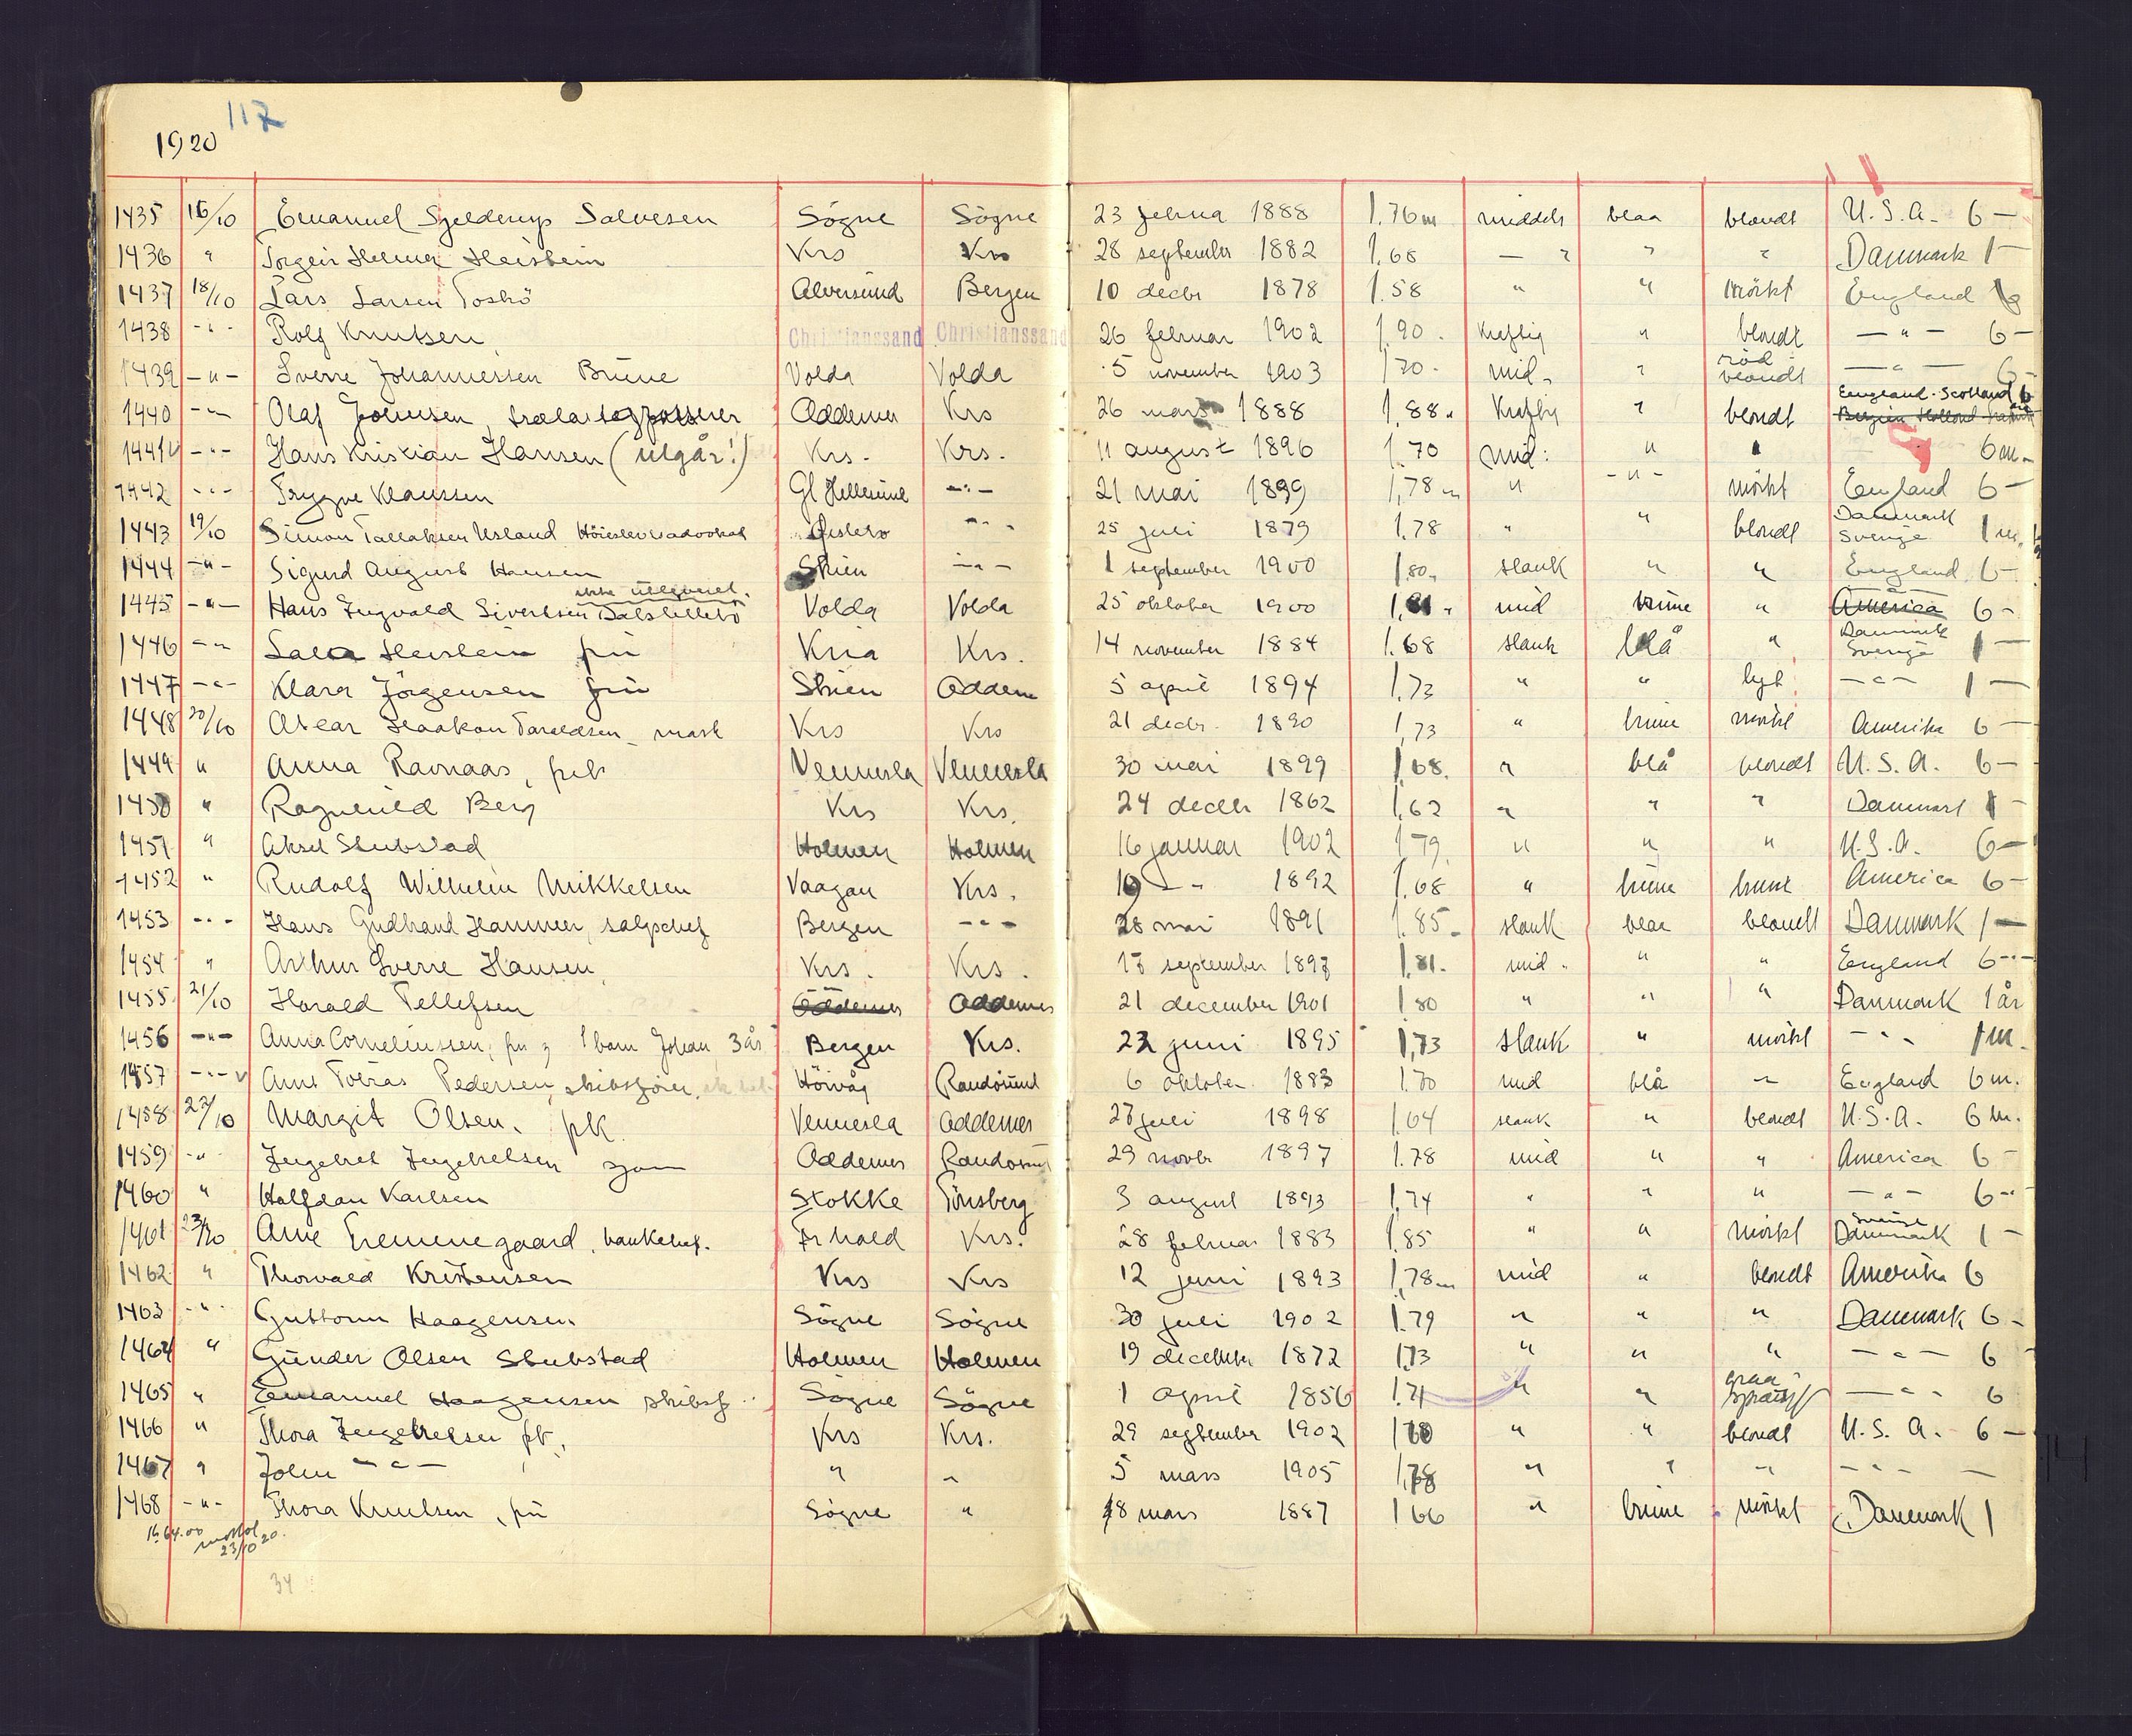 117
1920
1435 16/10 Emanuel Sjelderup Salvesen Sögne Sögne 23 februa 1888 1.76m middels blaa blondt U.S.A. 6 —
1436 " Torgeir Helmer Heistein Krs Krs 28 september 1882 1.68 — " " " Danmark 1 —
1437 18/10 Lars Larsen Toskö Alversund Bergen 10 decbr 1878 1.58 " " mörkt England
1438 - " - Rolf Knutsen Christianssand Christianssand 26 februar 1902 1.90 . kraftig " blondt — " — 6 —
1439 - " - Sverre Johannessen Brune Volda Volda 5 november 1903 170 . mid. " röd blondt — " — 6 -
1440 - " - Olaf Johnsen, Oddernes Krs 26 mars 1888 1.88 " kraftig " blondt England - Scotland 6 Belgien Holland
1441 v - " - Hans Kristian Hansen (utgår!) Krs. Krs. 11 august 1896 1.70 mid: " " 6m.
1442 - " - Trygve Klaussen Gl Hellesund — " — 21 mai 1899 1,78 m " - " - mörkt England 6 —
1443 19/10 Simon Tallaksen Usland Höiesteretsadvokat Öislebö " " 25 juli 1879 1.78 " " blondt Danmark Sverige 1 m.
1444 - " - Sigurd August Hansen Skien — " — 1 september 1900 1.80 " slank " " England 6 -
1445 - " - Hans Ingvald Sivertsen Dalslillebö ikke utleveret. Volda Volda 25 oktober 1900 1,81 " mid brune " America 6 -
1446 - " - Heistein fru Kria Krs. 14 november 1884 1.68 slank blå " Danmark Sverige 1 —
1447 - " - Klara Jörgensen fru Skien Oddern 5 april 1894 1.73 " " lyst — " — 1 —
1448 20/10 Haakon Taraldsen Krs Krs 21 decbr. 1890 1,73 " brune mörkt Amerika 6 —
1449 " Anna Ravnaas, frk Vennesla Vennesla 30 mai 1899 1,68. " blå blondt U.S.A. 6 —
1450 " Ragnhild Berg Krs Krs. 24 decbr 1862 1,62 " " " Danmark 1 -
1451 " Aksel Stubstad Holmen Holmen 16 januar 1902 1 79. " " " U.S.A. 6 —
1452 " Rudolf Wilhelm Mikkelsen Vaagan Krs. 19 - " 1892 1.68 " brune brunt America 6 —
1453 - " - Hans Gudbrand Hammer, salgschef Bergen - " - 28 mai 1891 1.85 - slank blaa blondt Danmark 1 —
1454 " Arthur Sverre Hansen Krs. Krs. 17 september 1897 1.81. mid. " " England 6 - -
1455 21/10 Harald Tellefsen Oddernes Oddernes 21 december 1901 1 80 " " " Danmark 1 år
1456 - " - Anna Corneliussen, fru og 1 barn Johan, 3 år Bergen Krs. 22 juni 1895 1,73 slank " mörkt - " - 1m.
1457 - " - v Arnt Tobias Pedersen, skibsförer, Hövåg Randösund 6 oktober 1883 1.70 mid blå " England 6m.
1458 22/10 Margit Olsen, frk. Vennesla Oddernes 27 juli 1898 1.64 slank " blondt U.S.A. 6 m.
1459 - " - Ingebret Ingebretsen sjöm Oddernes Randösund 29 novbr 1897 1.78 mid " " America 6 -
1460 " Halfdan Karlsen Stokke Tönsberg 3 august 1893 1.74 " " " — " — 6 - "
1461 23/10 Arne Tremmegaard, bankchef. Fr hald Krs. 28 februar 1883 1.85 " " mörkt Sverige Danmark 1 —
1462 " Thorvald Kristensen Krs Krs 12 juni 1893 1,78 m mid " blondt Amerika 6
1463 - " - Guttorm Haagensen Sögne Sögne 30 juli 1902 1.79 " " " Danmark 6 -
1464 " Gunder Olsen Stubstad Holmen Holmen 19 december 1872 1.73 " " " — " — 6 -
1465 " Emanuel Haagensen skibsf. Sögne Sögne 1 april 1856 1.71 " " graa sprængt — " - 6
1466 " Thora Ingebretsen frk. Krs Krs. 29 september 1902 170 " " blondt U.S.A. 6 —
1467 " John — " — " " 5 mars 1905 1,78 " " " — " — —
1468 - " - Thora Knutsen, fru Sögne " 18 mars 1887 1 66 " brune mörkt Danmark 1
kr 64.00 mottat 23/10 20.
34
14